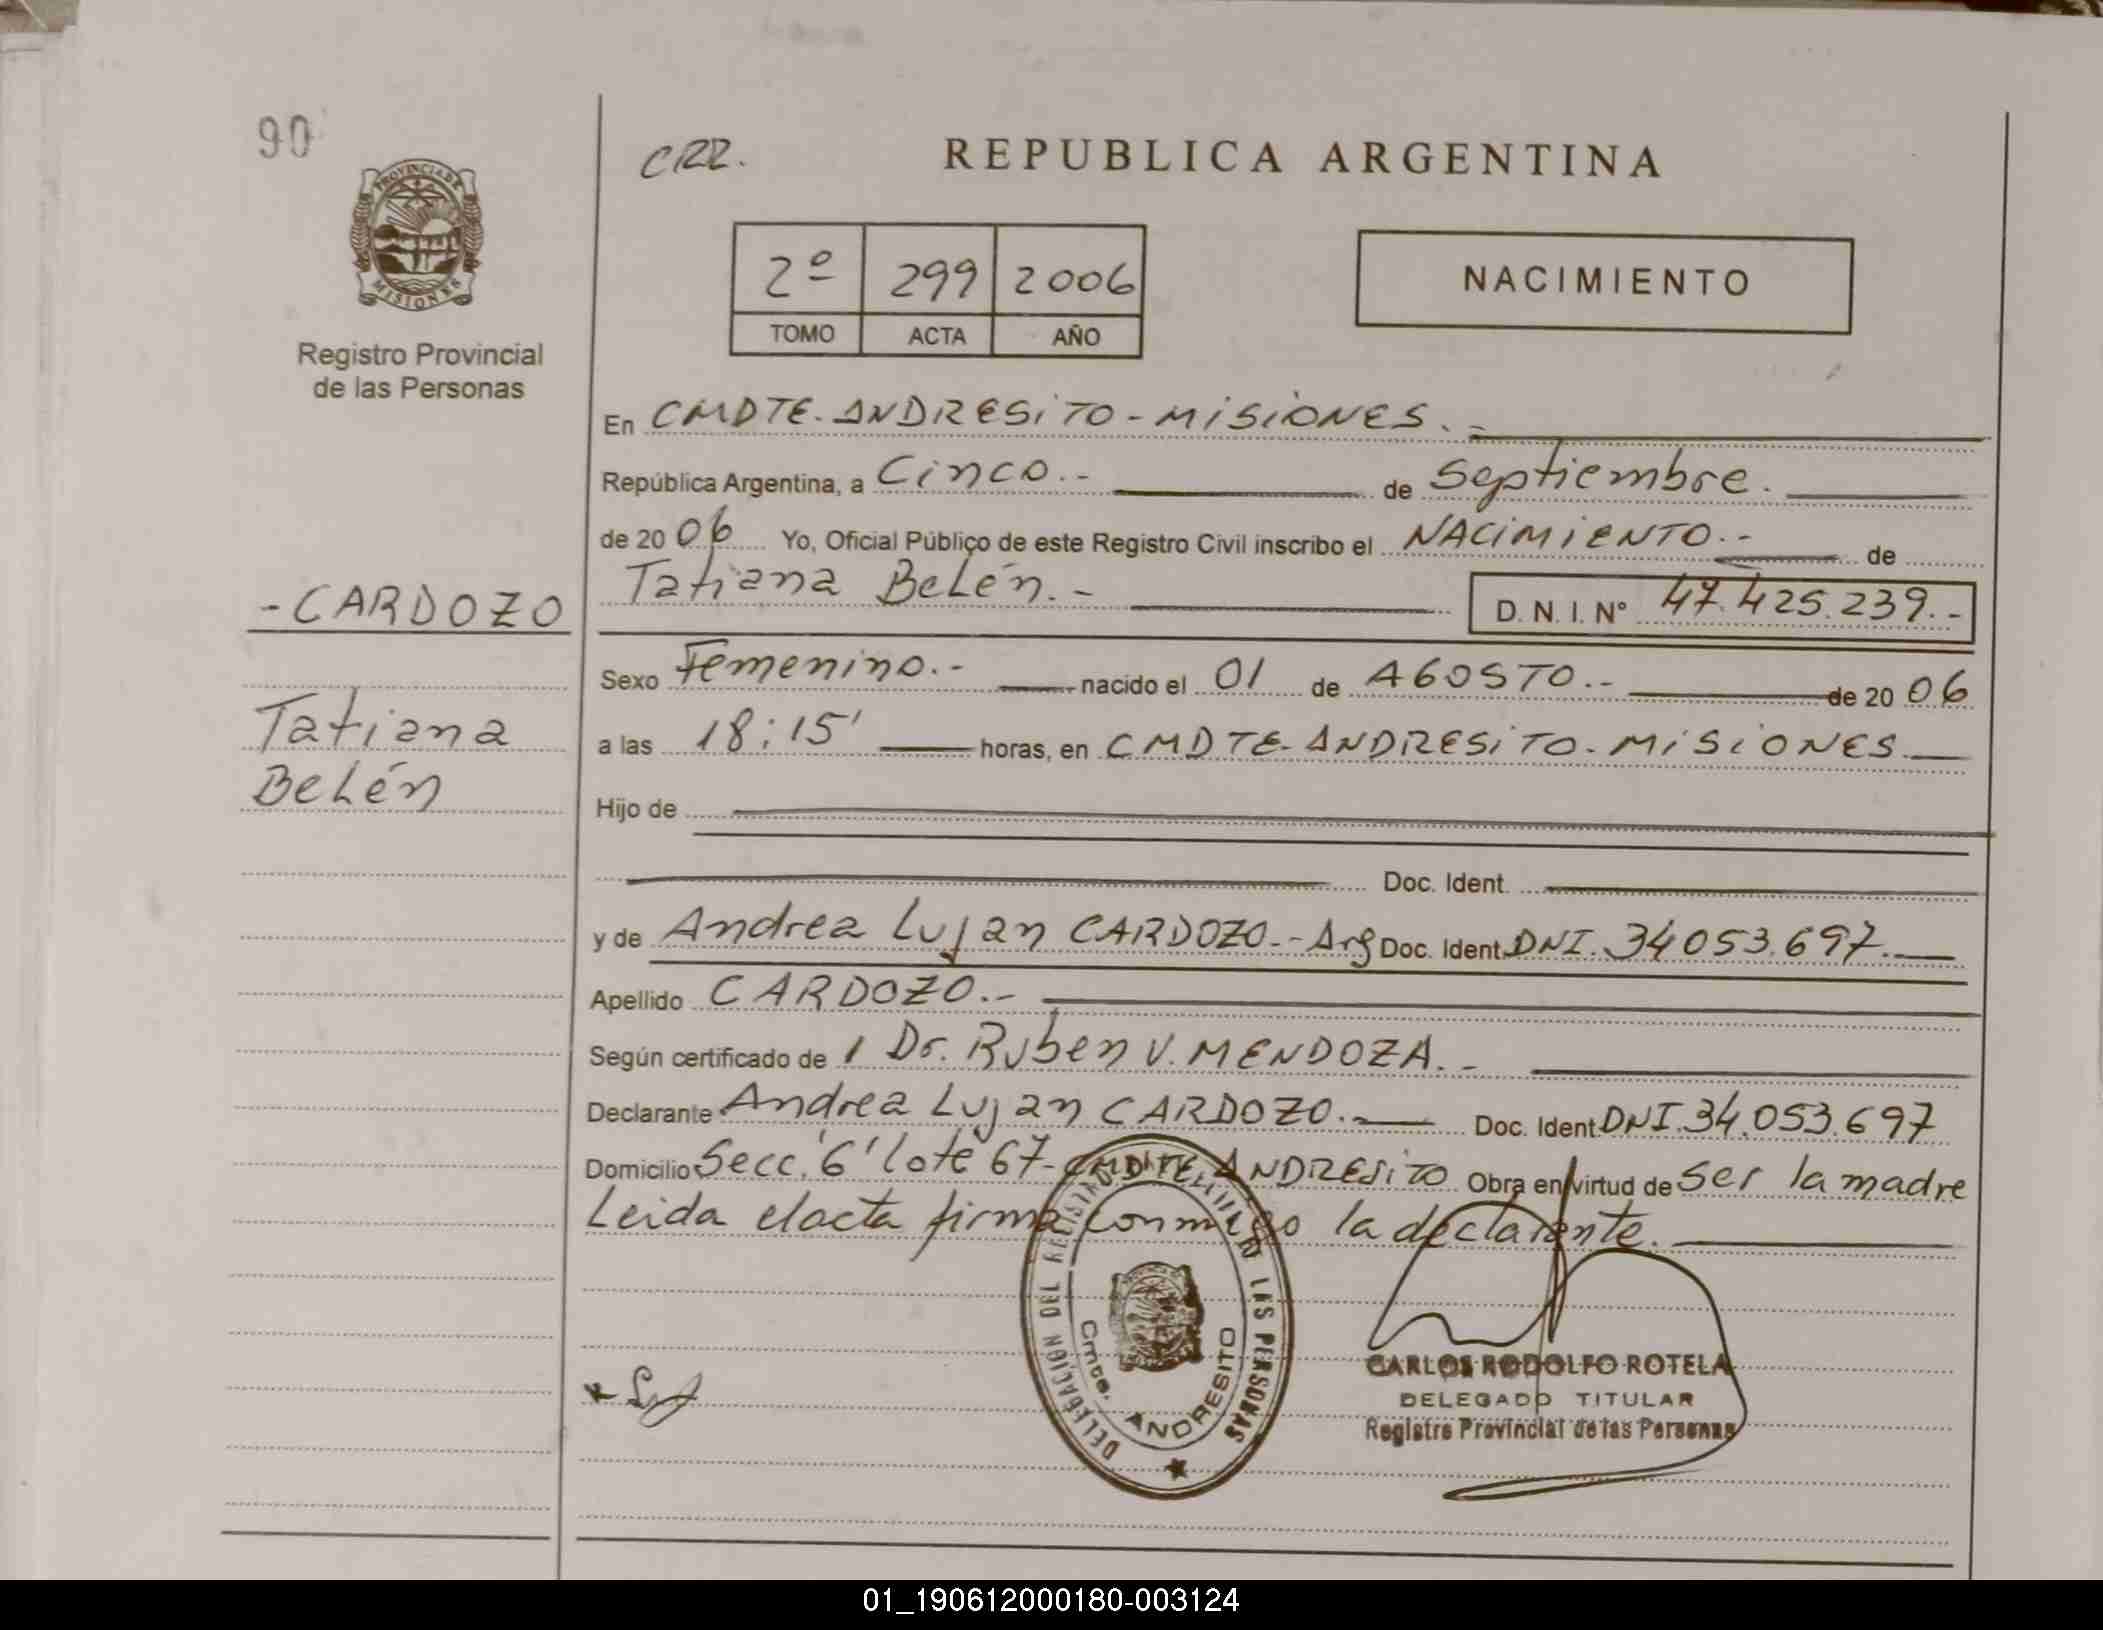 90
PROVINCIA DE
MISIONES
Registro Provincial
de las Personas
- CARDOZO
Tatiana
Belén
CRR.
REPUBLICA ARGENTINA
2º 299 2006
TOMO ACTA AÑO
NACIMIENTO
En CMDTE. ANDRESiTO - MiSiONES. -
República Argentina, a Cinco. - de Septiembre.
de 20 06 Yo, Oficial Público de este Registro Civil inscribo el NACiMiENTO. - de
Tatiana Belén. - D. N. I. Nº 47.425.239. -
Sexo Femenino. - nacido el 01 de AGOSTO. - de 20 06
a las 18:15' horas, en CMDTE. ANDRESiTO. MiSiONES.
Hijo de
Doc. Ident.
y de Andrea Lujan CARDOZO. - Arg Doc. Ident. DNI. 34053.697.
Apellido CARDOZO. -
Según certificado de 1 Dr. Ruben V. MENDOZA. -
Declarante Andrea Lujan CARDOZO. Doc. Ident. DNI. 34.053.697
Domicilio Secc. '6' lote 67- CMDTE. ANDRESiTO Obra en virtud de ser la madre
Leida elacta firma conmigo la declarante.
DELEGACION DEL REGISTRO LAS PERSONAS
Cmte. ANDRESITO
CARLOS RODOLFO ROTELA
DELEGADO TITULAR
Registro Provincial de las Personas
01_190612000180-003124